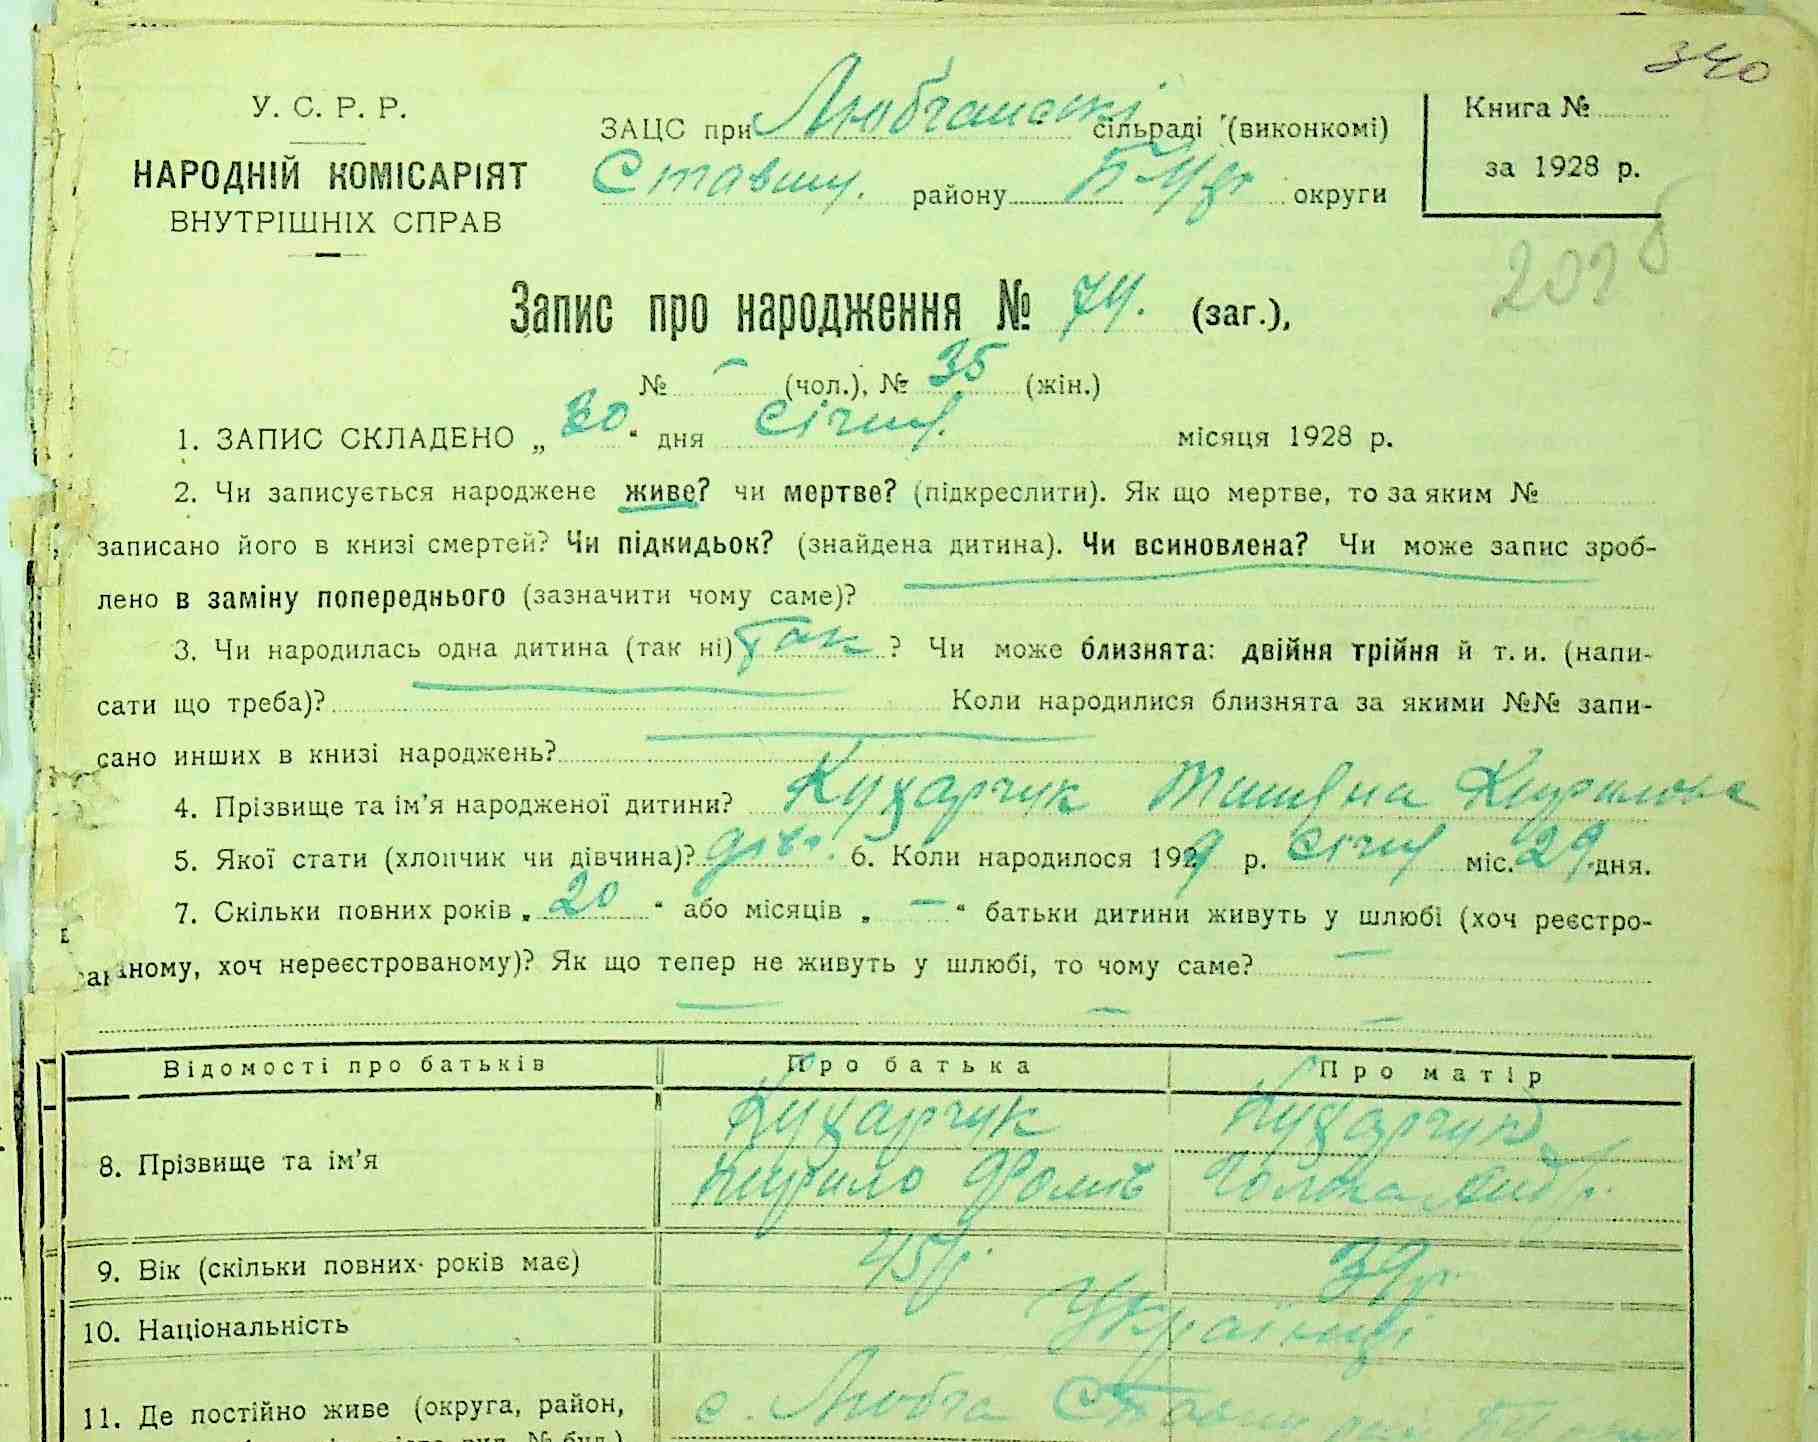 340
У. С. Р. Р.
НАРОДНІЙ КОМІСАРІЯТ
ВНУТРІШНІХ СПРАВ
ЗАЦС при Любчанські сільраді (виконкомі)
Ставищ. району округи
Книга №
за 1928 р.
Запис про народження № 74. (заг.),
№ - (чол.), № 35 (жін.)
1. ЗАПИС СКЛАДЕНО „ 30 " дня січня місяця 1928 р.
2. Чи записується народжене живе? чи мертве? (підкреслити). Як що мертве, то за яким №
записано його в книзі смертей? Чи підкидьок? (знайдена дитина). Чи всиновлена? Чи може запис зроб-
лено в заміну попереднього (зазначити чому саме)?
3. Чи народилась одна дитина (так ні) так ? Чи може близнята: двійня трійня й т. и. (напи-
сати що треба)? Коли народилися близнята за якими №№ запи-
сано инших в книзі народжень?
4. Прізвище та ім'я народженої дитини? Кухарчук Кирилова
5. Якої стати (хлопчик чи дівчина)? дівч. 6. Коли народилося 1929 р. січня міс. 29 дня.
7. Скільки повних років „ 20 " або місяців „ - " батьки дитини живуть у шлюбі (хоч реєстро-
ному, хоч нереєстрованому)? Як що тепер не живуть у шлюбі, то чому саме? -
Відомості про батьків Про батька Про матір
8. Прізвище та ім'я Кухарчук Кирило Кухарчук
9. Вік (скільки повних років має) 45 р. 39 р.
10. Національність Українці
11. Де постійно живе (округа, район, с. Любча